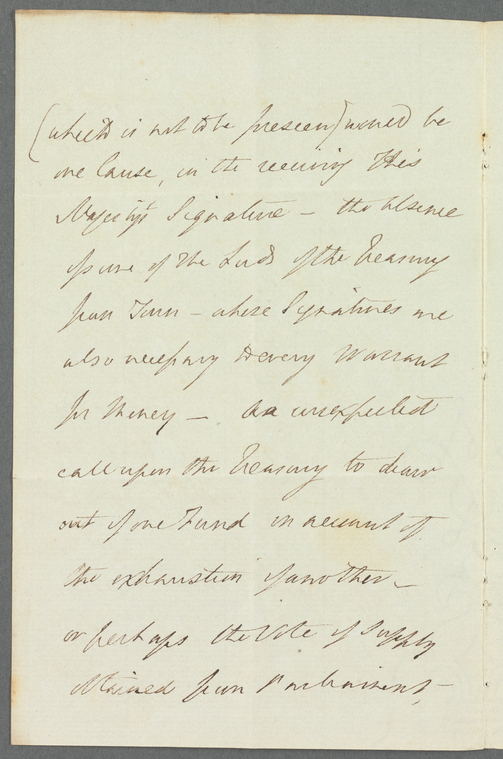 (which is not to be foreseen) would be
one Cause, in the receiving His
Majesty's Signature – the absence
of some of the Lords of the Treasury
from Town – whose Signatures are
also necessary to every Warrant
for Money – an unexpected
call upon the Treasury to draw
out of one Fund on account of
the exhaustion of another –
or perhaps the Vote of Supply
obtained from Parliament, –